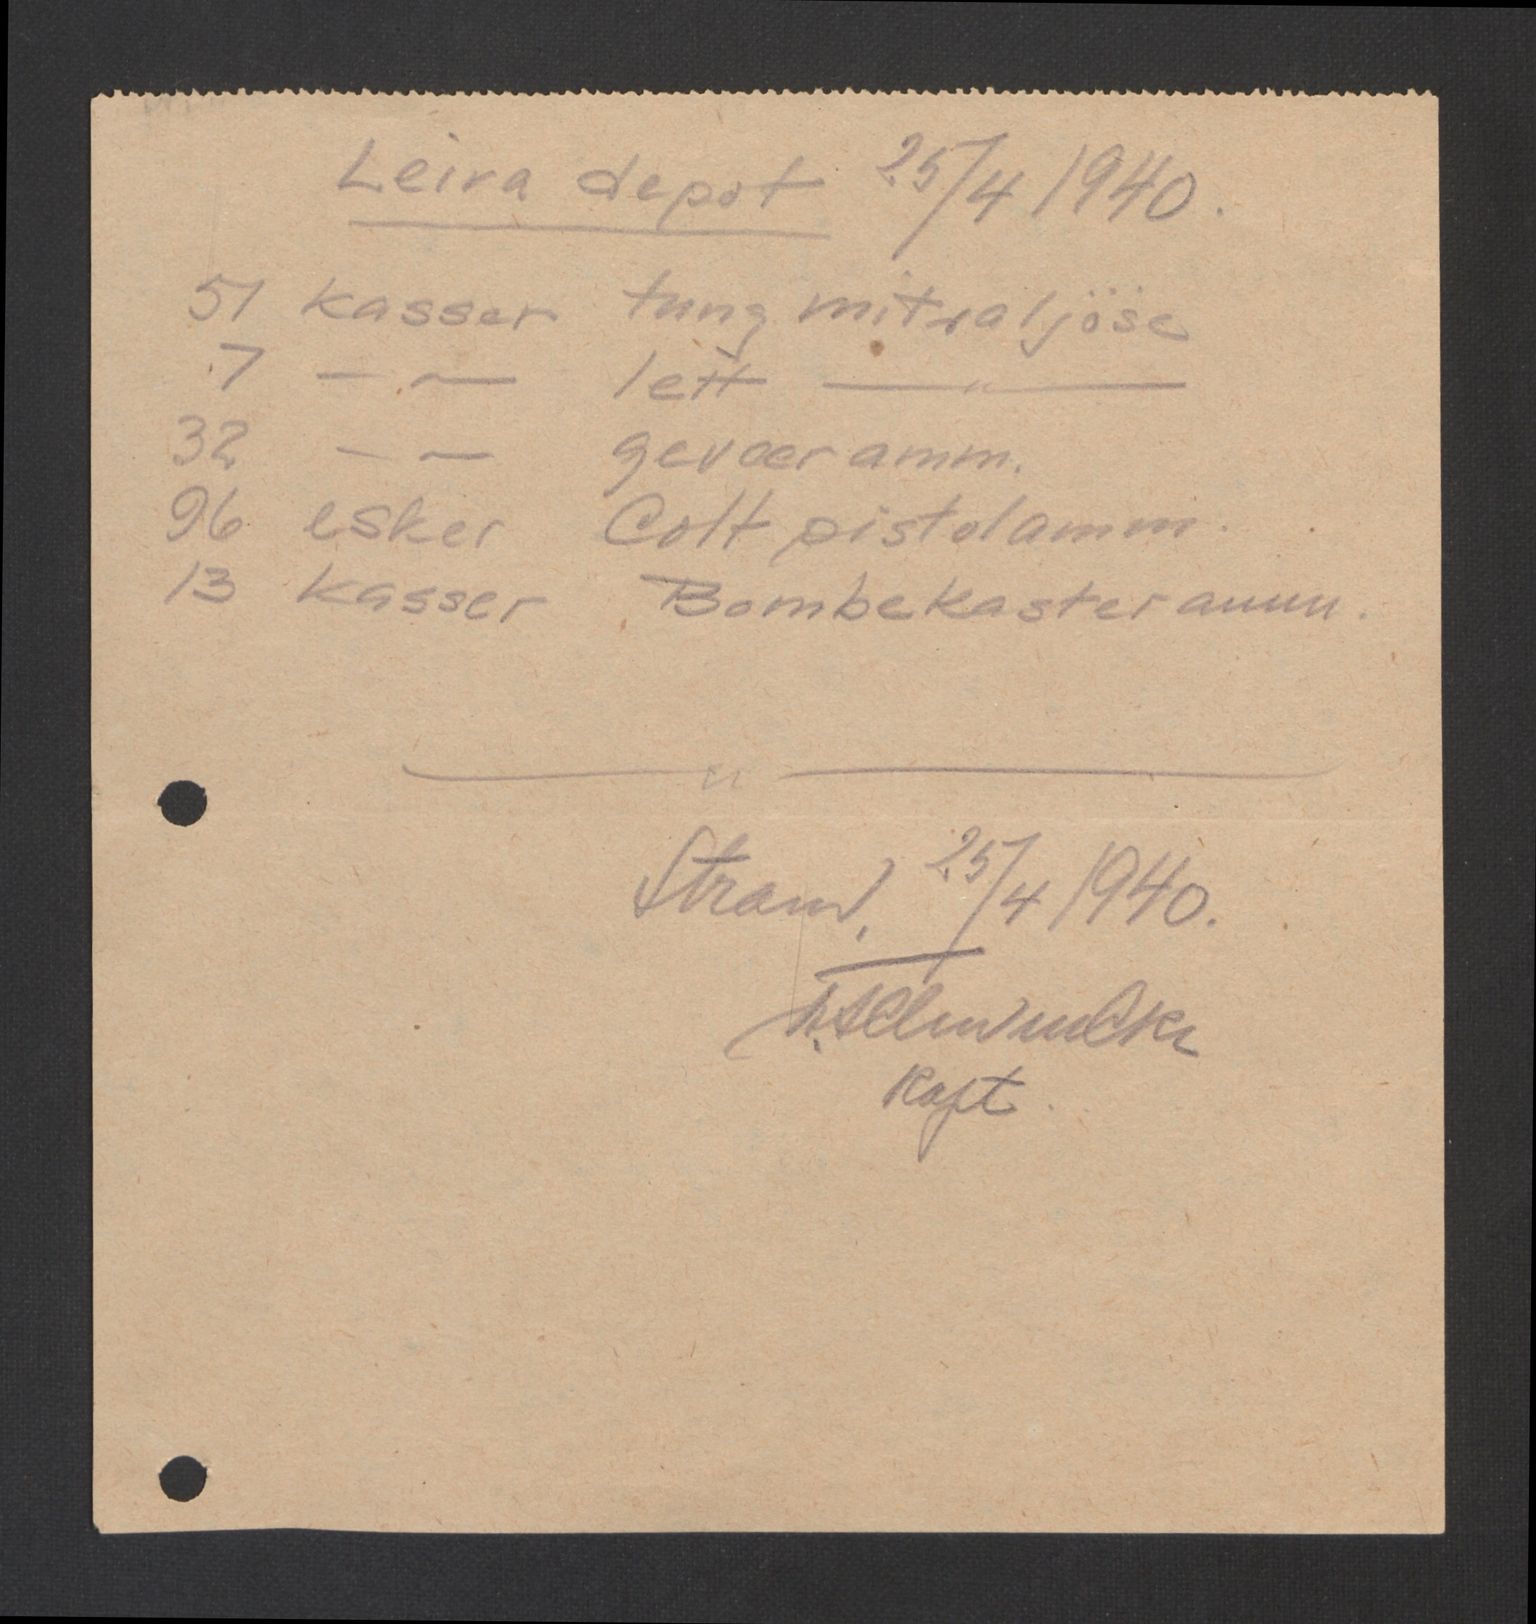 Leira depot 25/4 1940.
51 kasser tung mitraljöse
7 — 〃 — lett — 〃 —
32 — 〃 — gevær amm.
96 esker Colt pistolamm.
13 kasser Bombekasteramm.
— 〃 —
Strand, 25/4 1940.
Kapt.